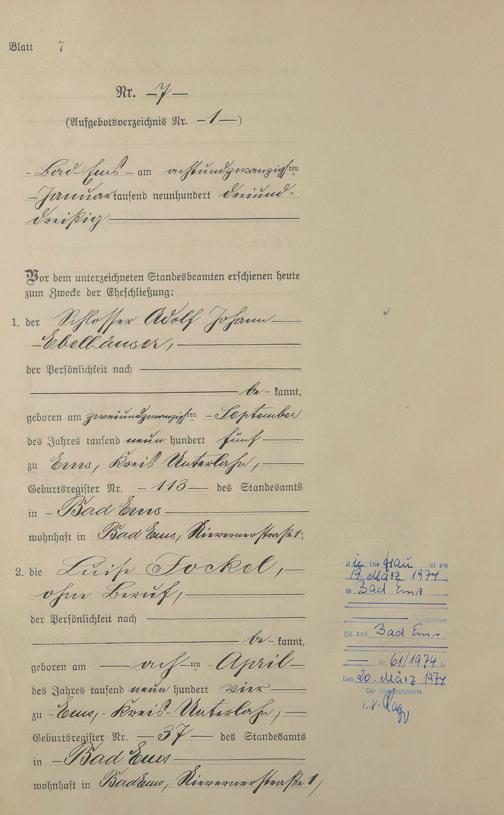 Blatt 7
Nr. 7
(Aufgebotsverzeichnis Nr. 1)
Bad Ems am achtundzwanzigsten
Januar tausend neunhundert dreiund-
dreißig
Vor dem unterzeichneten Standesbeamten erschienen heute
zum Zwecke der Eheschließung:
1. der Schlosser Adolf Johann
Ebelhäuser,
der Persönlichkeit nach
be-kannt,
geboren am zweiundzwanzigsten September
des Jahres tausend neun hundert fünf
zu Ems, Kreis Unterlahn,
Geburtsregister Nr. 113 des Standesamts
in Bad Ems
wohnhaft in Bad Ems, Nievernerstraße 1,
2. die Luise Fockel,
ohne Beruf,
der Persönlichkeit nach
be-kannt,
geboren am achten April
des Jahres tausend neun hundert vier
zu Ems, Kreis Unterlahn,
Geburtsregister Nr. 37 des Standesamts
in Bad Ems
wohnhaft in Bad Ems, Nievernerstraße 1,
Ehefrau ist am
19. März 1974
in Bad Ems
verstorben
Bad Ems
Nr. 61/1974
Den 20. März 1974
Der Standesbeamte
i. V.